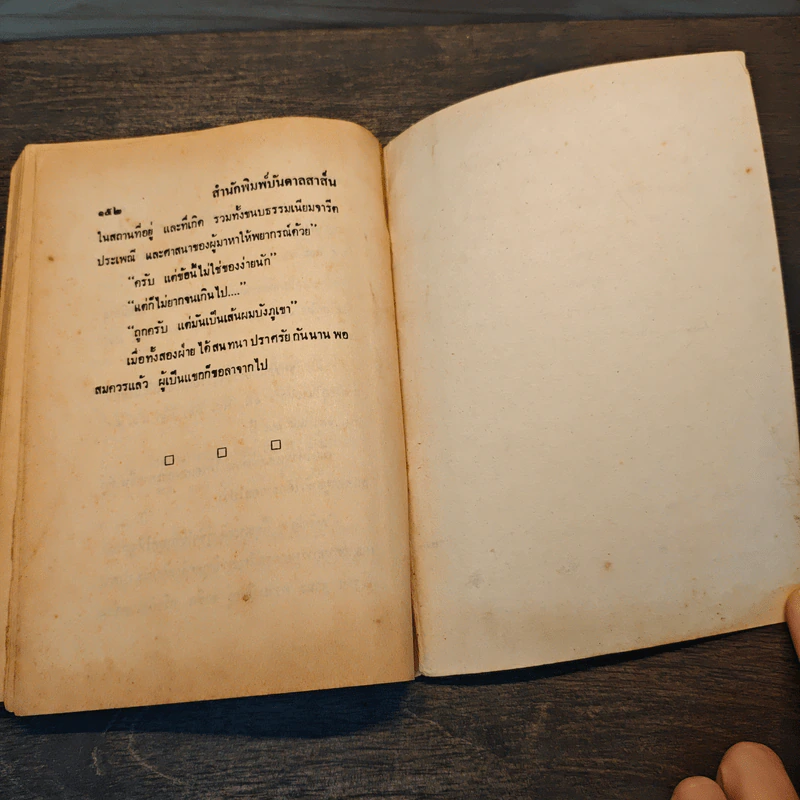 ๑๕๒ สำนักพิมพ์บันดาลสาส์น
ในสถานที่อยู่ และที่เกิด รวมทั้งขนบธรรมเนียมจารีต
ประเพณี และศาสนาของผู้มาหาให้พยากรณ์ด้วย”
“ครับ แต่ข้อนี้ไม่ใช่ของง่ายนัก”
“แต่ก็ไม่ยากจนเกินไป....”
“ถูกครับ แต่มันเป็นเส้นผมบังภูเขา”
เมื่อทั้งสองฝ่ายได้สนทนาปราศรัยกันนานพอ
สมควรแล้ว ผู้เป็นแขกก็ขอลาจากไป